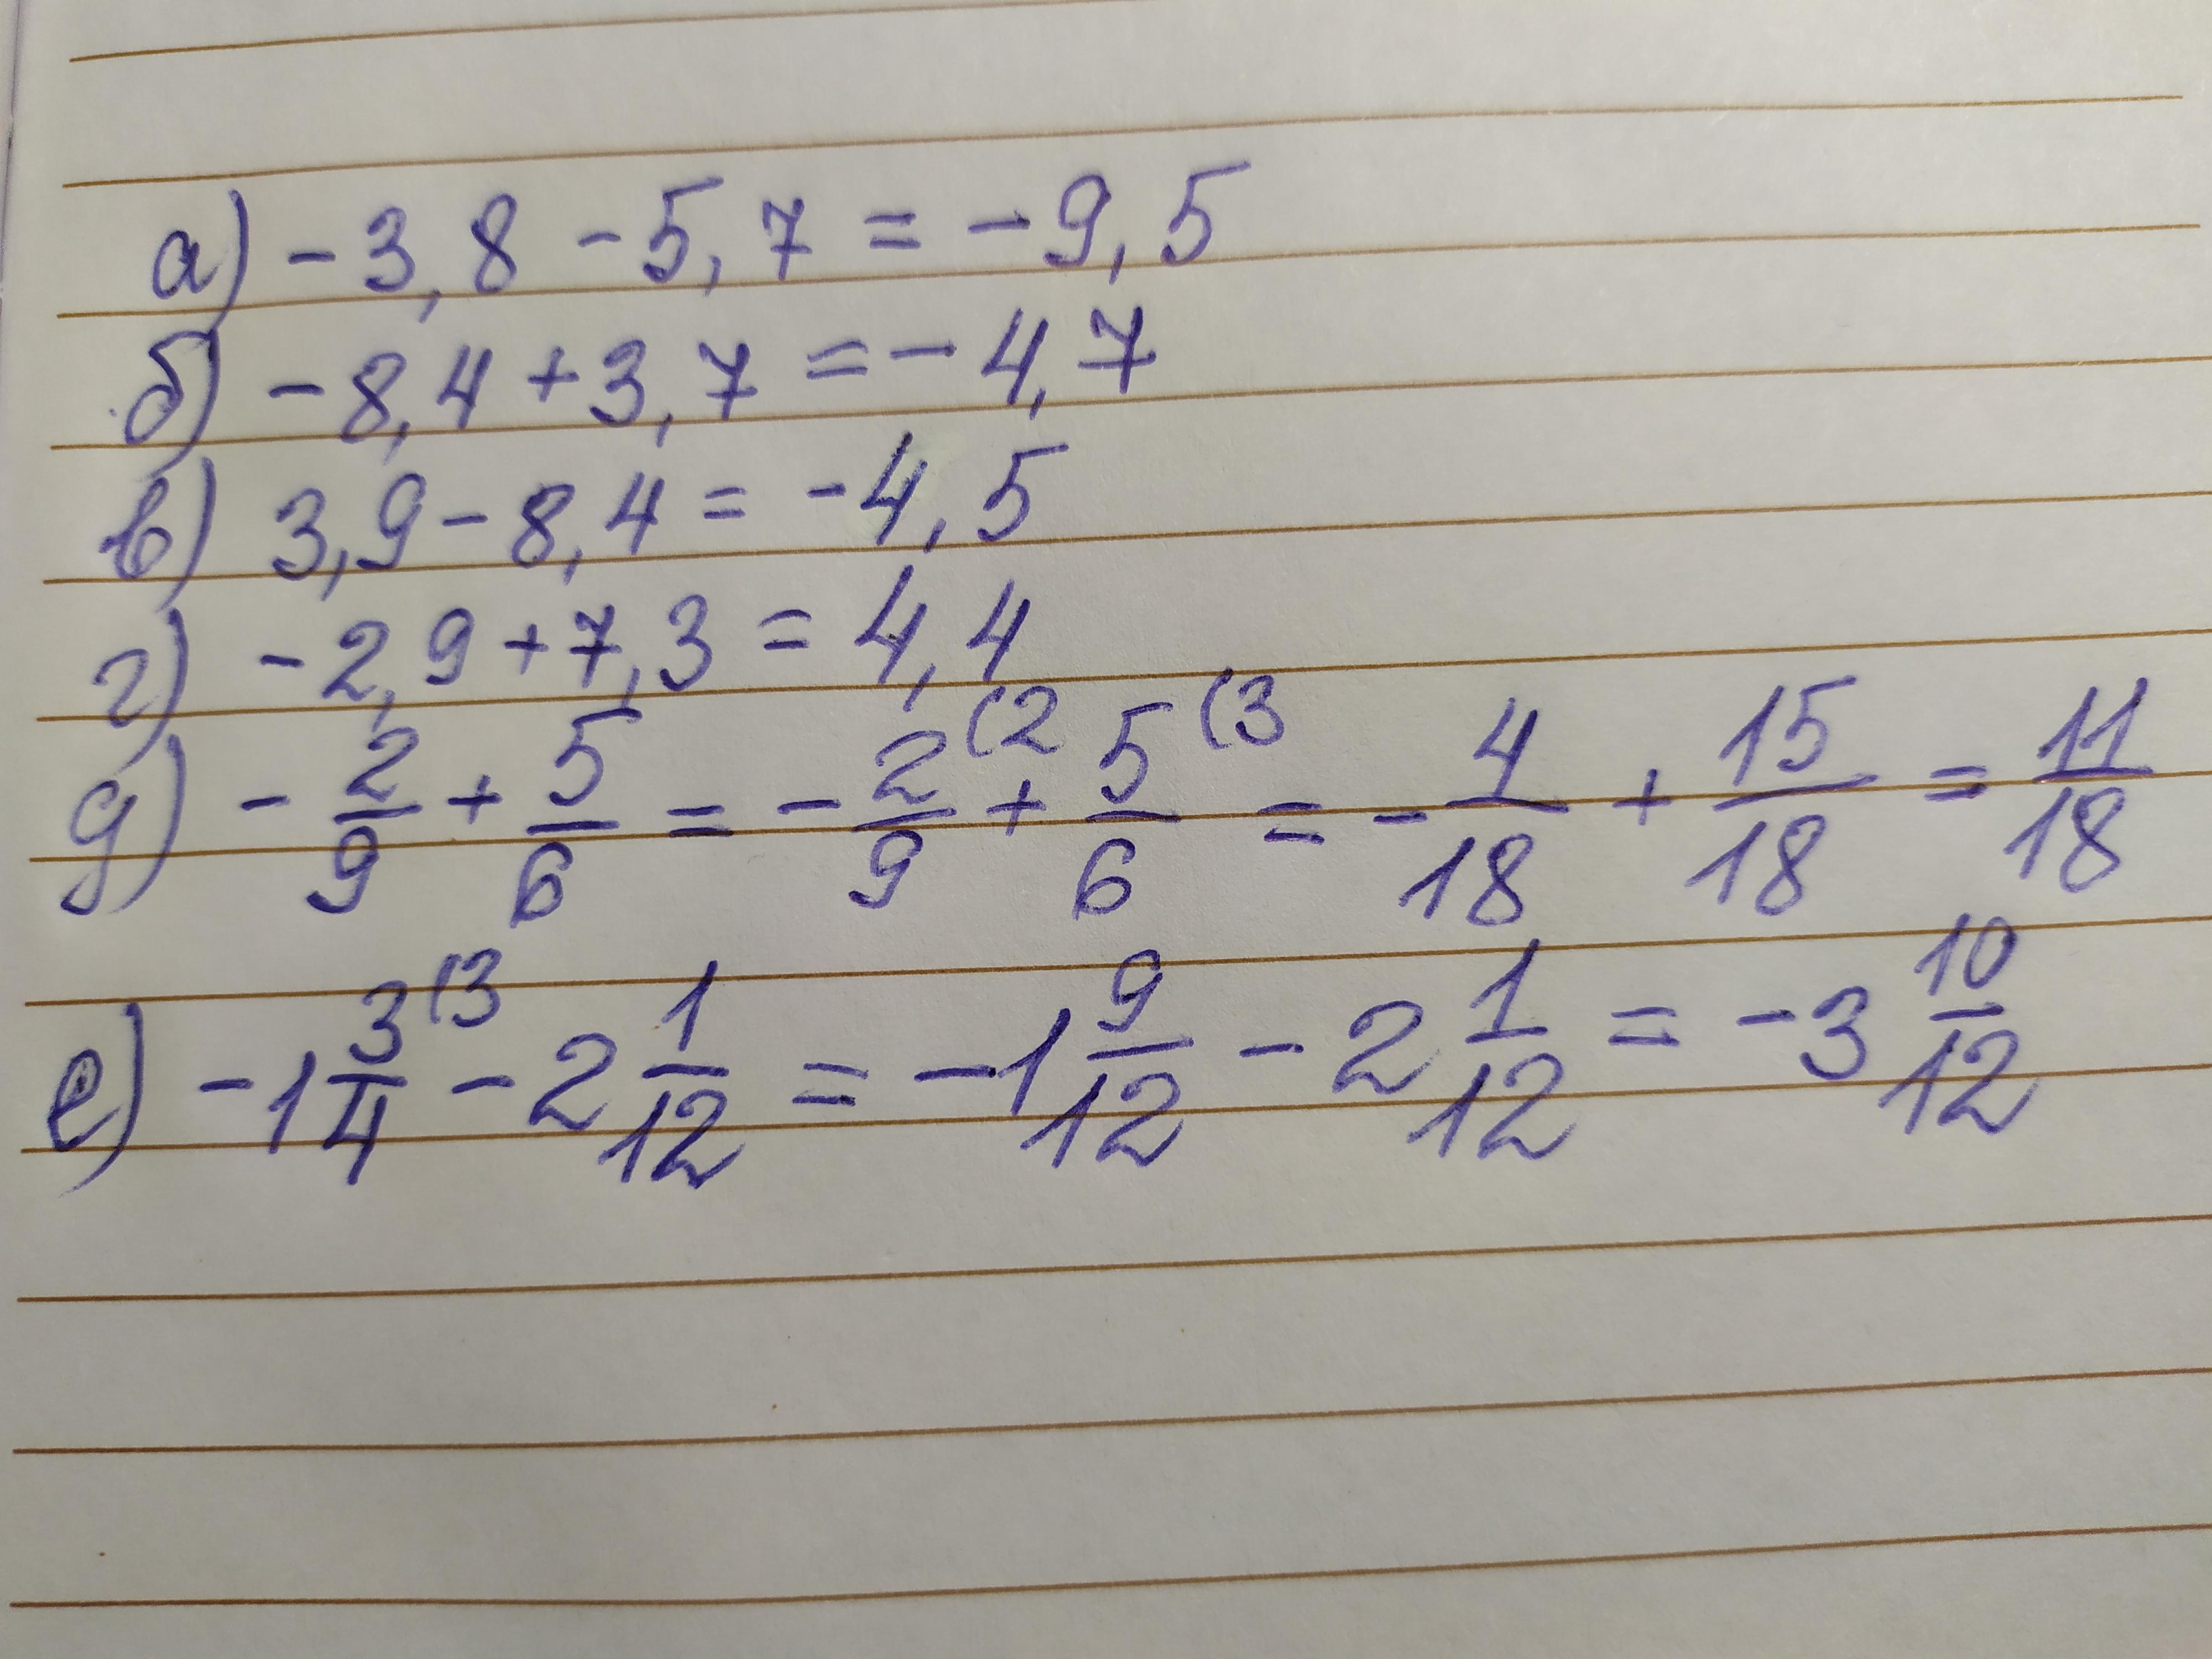 а) -3,8 -5,7 = -9,5
б) -8,4 +3,7 = -4,7
в) 3,9 - 8,4 = -4,5
г) -2,9 +7,3 = 4,4
д) - 2/9 + 5/6 = - 2/9 (2 + 5/6 (3 = - 4/18 + 15/18 = 11/18
е) -1 3/4 (3 - 2 1/12 = -1 9/12 - 2 1/12 = -3 10/12